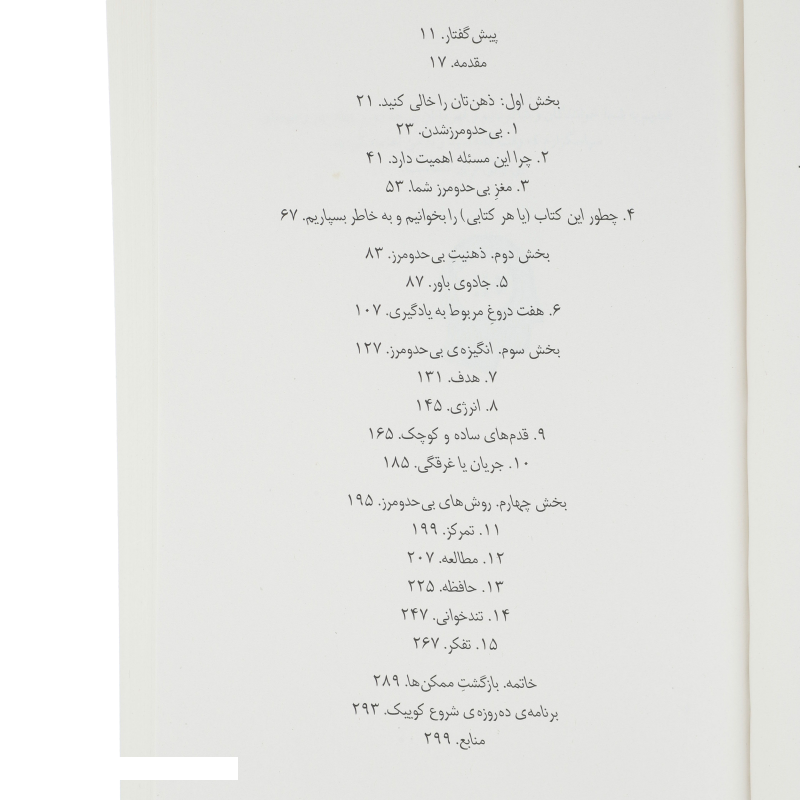 پیش‌گفتار. ۱۱
مقدمه. ۱۷
بخش اول: ذهن‌تان را خالی کنید. ۲۱
۱. بی‌حدومرزشدن. ۲۳
۲. چرا این مسئله اهمیت دارد. ۴۱
۳. مغزِ بی‌حدومرز شما. ۵۳
۴. چطور این کتاب (یا هر کتابی) را بخوانیم و به خاطر بسپاریم. ۶۷
بخش دوم. ذهنیتِ بی‌حدومرز. ۸۳
۵. جادوی باور. ۸۷
۶. هفت دروغِ مربوط به یادگیری. ۱۰۷
بخش سوم. انگیزه‌ی بی‌حدومرز. ۱۲۷
۷. هدف. ۱۳۱
۸. انرژی. ۱۴۵
۹. قدم‌های ساده و کوچک. ۱۶۵
۱۰. جریان یا غرقگی. ۱۸۵
بخش چهارم. روش‌های بی‌حدومرز. ۱۹۵
۱۱. تمرکز. ۱۹۹
۱۲. مطالعه. ۲۰۷
۱۳. حافظه. ۲۲۵
۱۴. تندخوانی. ۲۴۷
۱۵. تفکر. ۲۶۷
خاتمه. بازگشتِ ممکن‌ها. ۲۸۹
برنامه‌ی ده‌روزه‌ی شروع کوییک. ۲۹۳
منابع. ۲۹۹